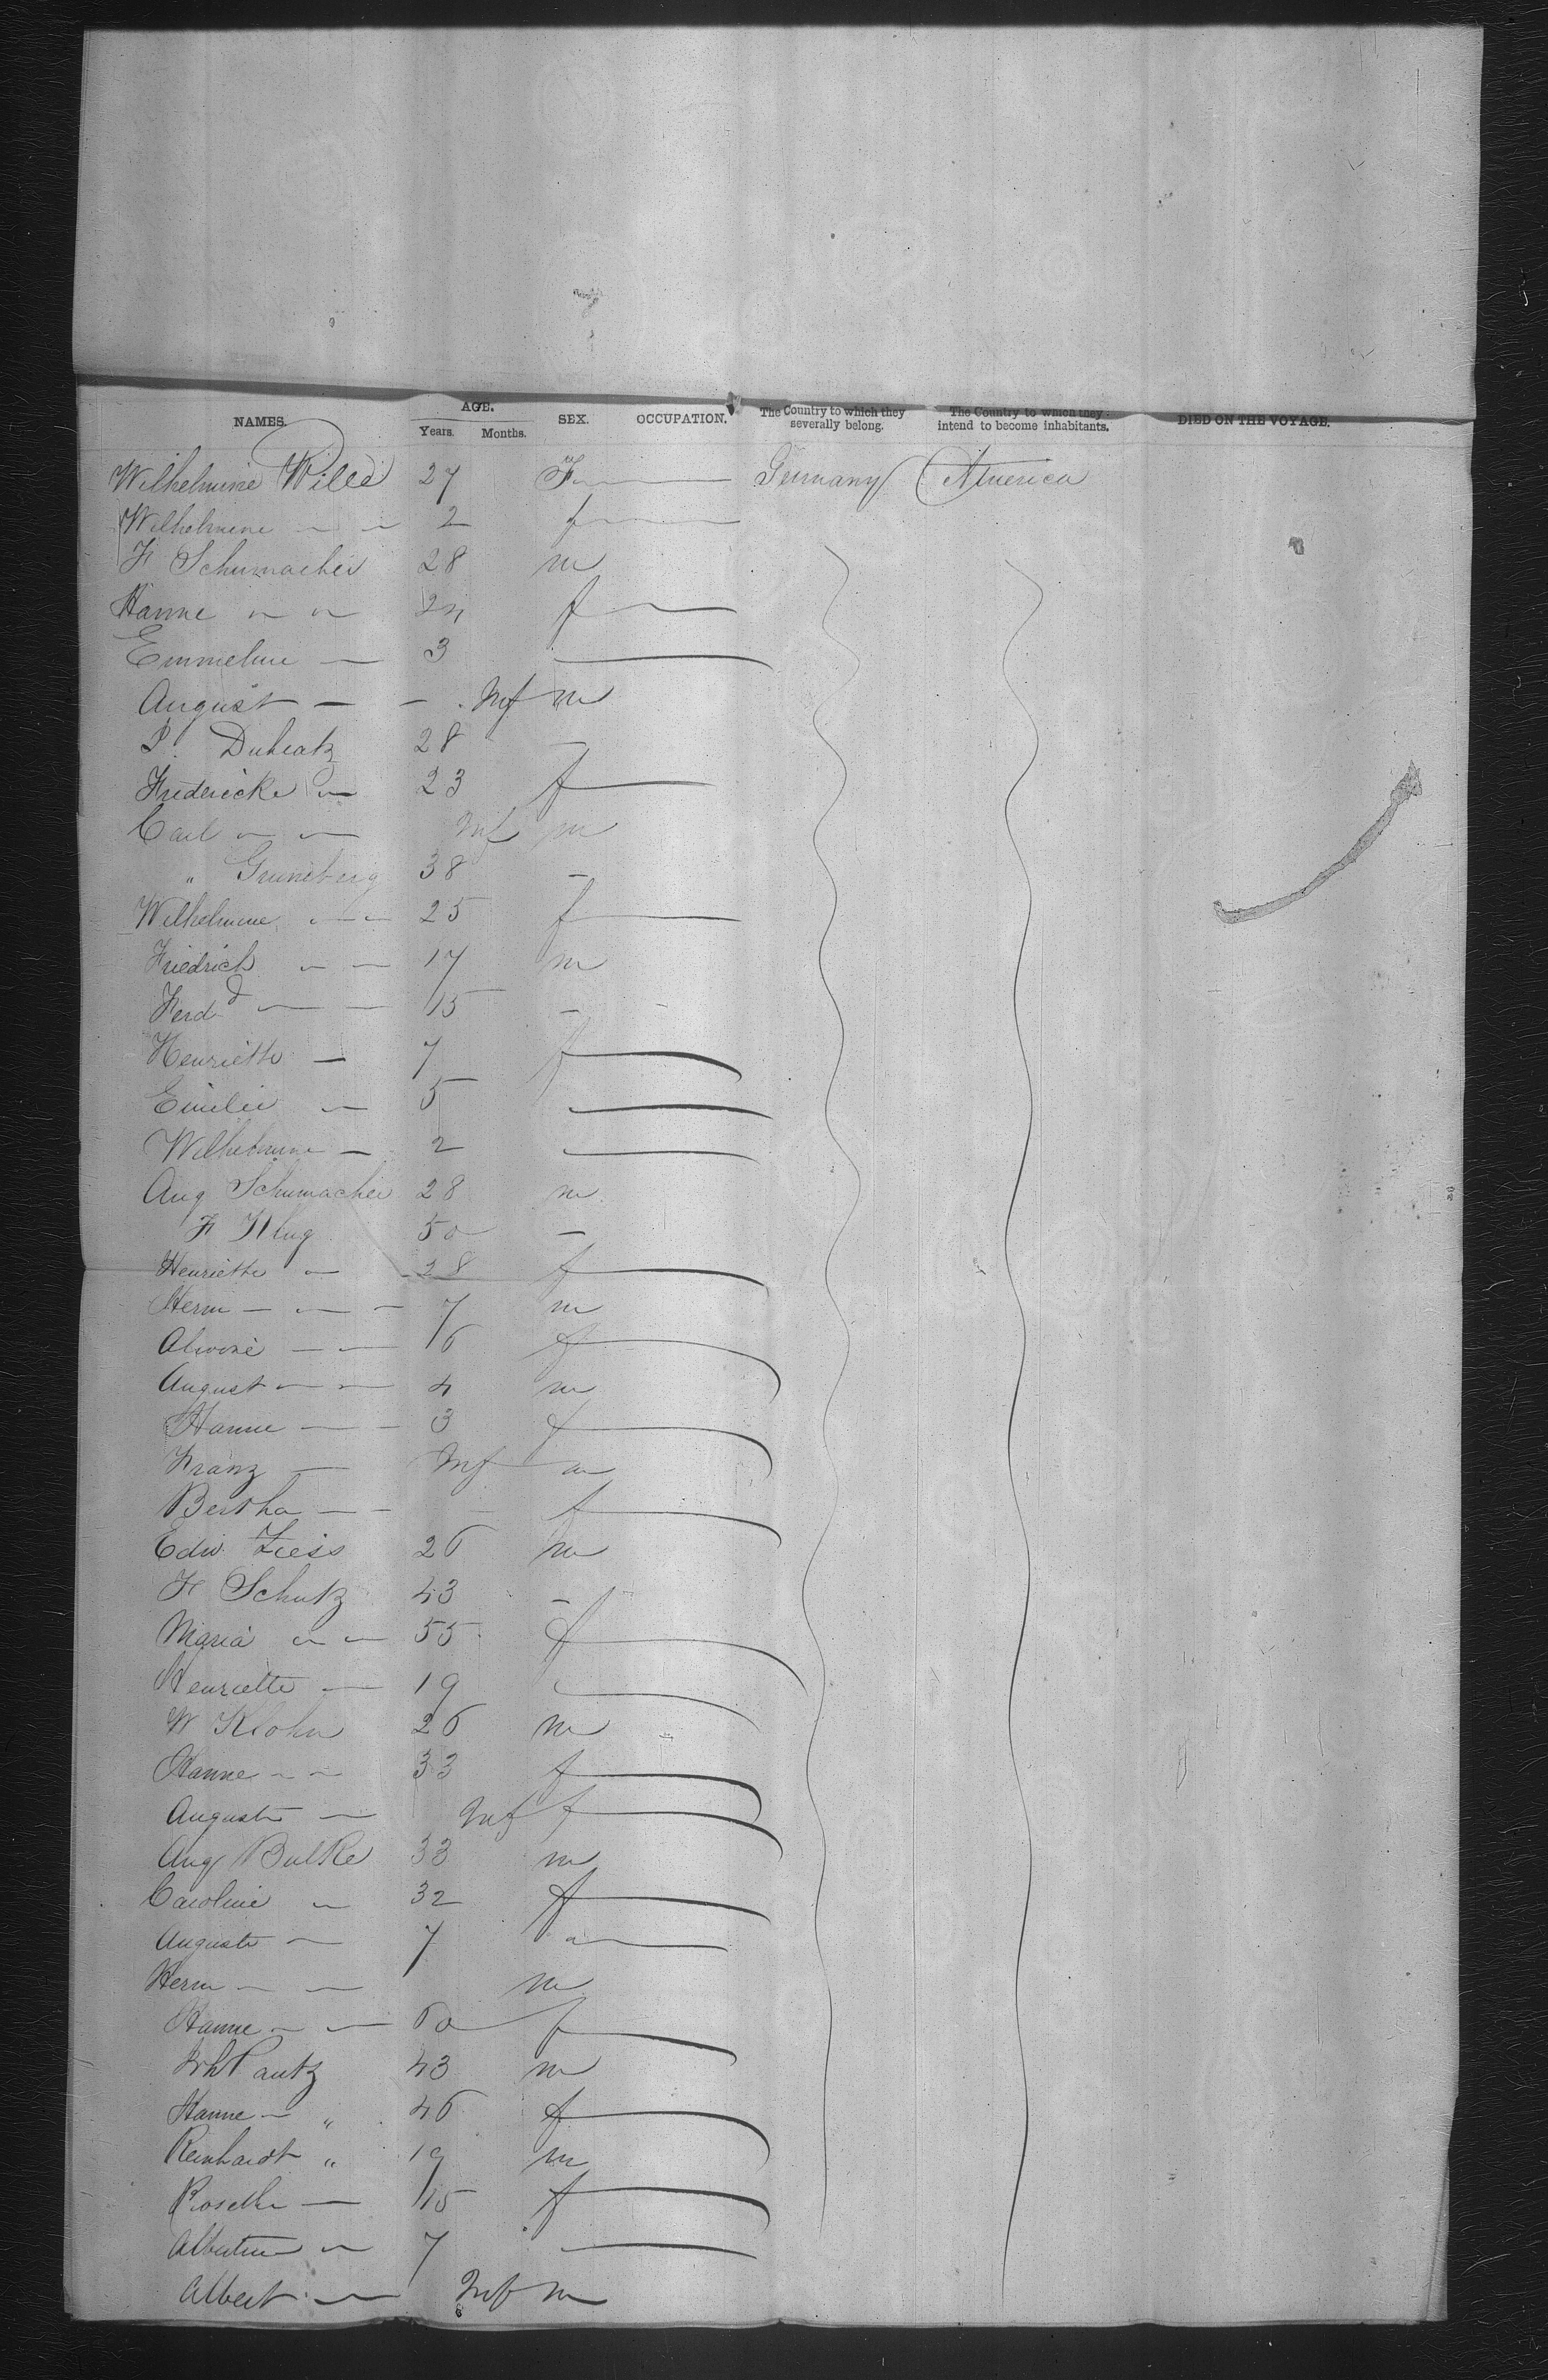 NAMES. AGE. SEX. OCCUPATION. The Country to which they severally belong. The Country to which they intend to become inhabitants. DIED ON THE VOYAGE.
Years. Months.
Wilhelmine Wille 27 F Germany America
Wilhelmine — — 2 f
F Schumacher 28 m
Hanne — — 24 f
Emmeline — 3 —
August — — Inf m
28 —
Fredericke — 23 f
Carl — — Inf m
" Gruneberg 38 —
Wilhelmine — — 25 f
Friedrich — — 17 m
Ferd — — 15 —
Henriette — 7 f
Emilie — 5 —
Wilhelmine — 2 —
Aug Schumacher 28 m
F Klug 50 —
Henriette — 28 f
Herm — — — 7 m
Alwine — — 6 f
August — — 4 m
Hanne — — 3 f
Franz — Inf m
Bertha — — — f
Edw Ziess 26 m
F Schutz 43 —
Maria — — 55 f
Henriette — 19 —
W Klohn 26 m
Hanne — — 33 f
Auguste — Inf f
Aug Bulke 33 m
Caroline — 32 f
Auguste — 7 —
Herm — — m
Hanne — — 60 f
Pautz 43 m
Hanne — " 46 f
Reinhardt " 19 m
Rosette — 15 f
Albertine — 7 —
Albert — Inf m